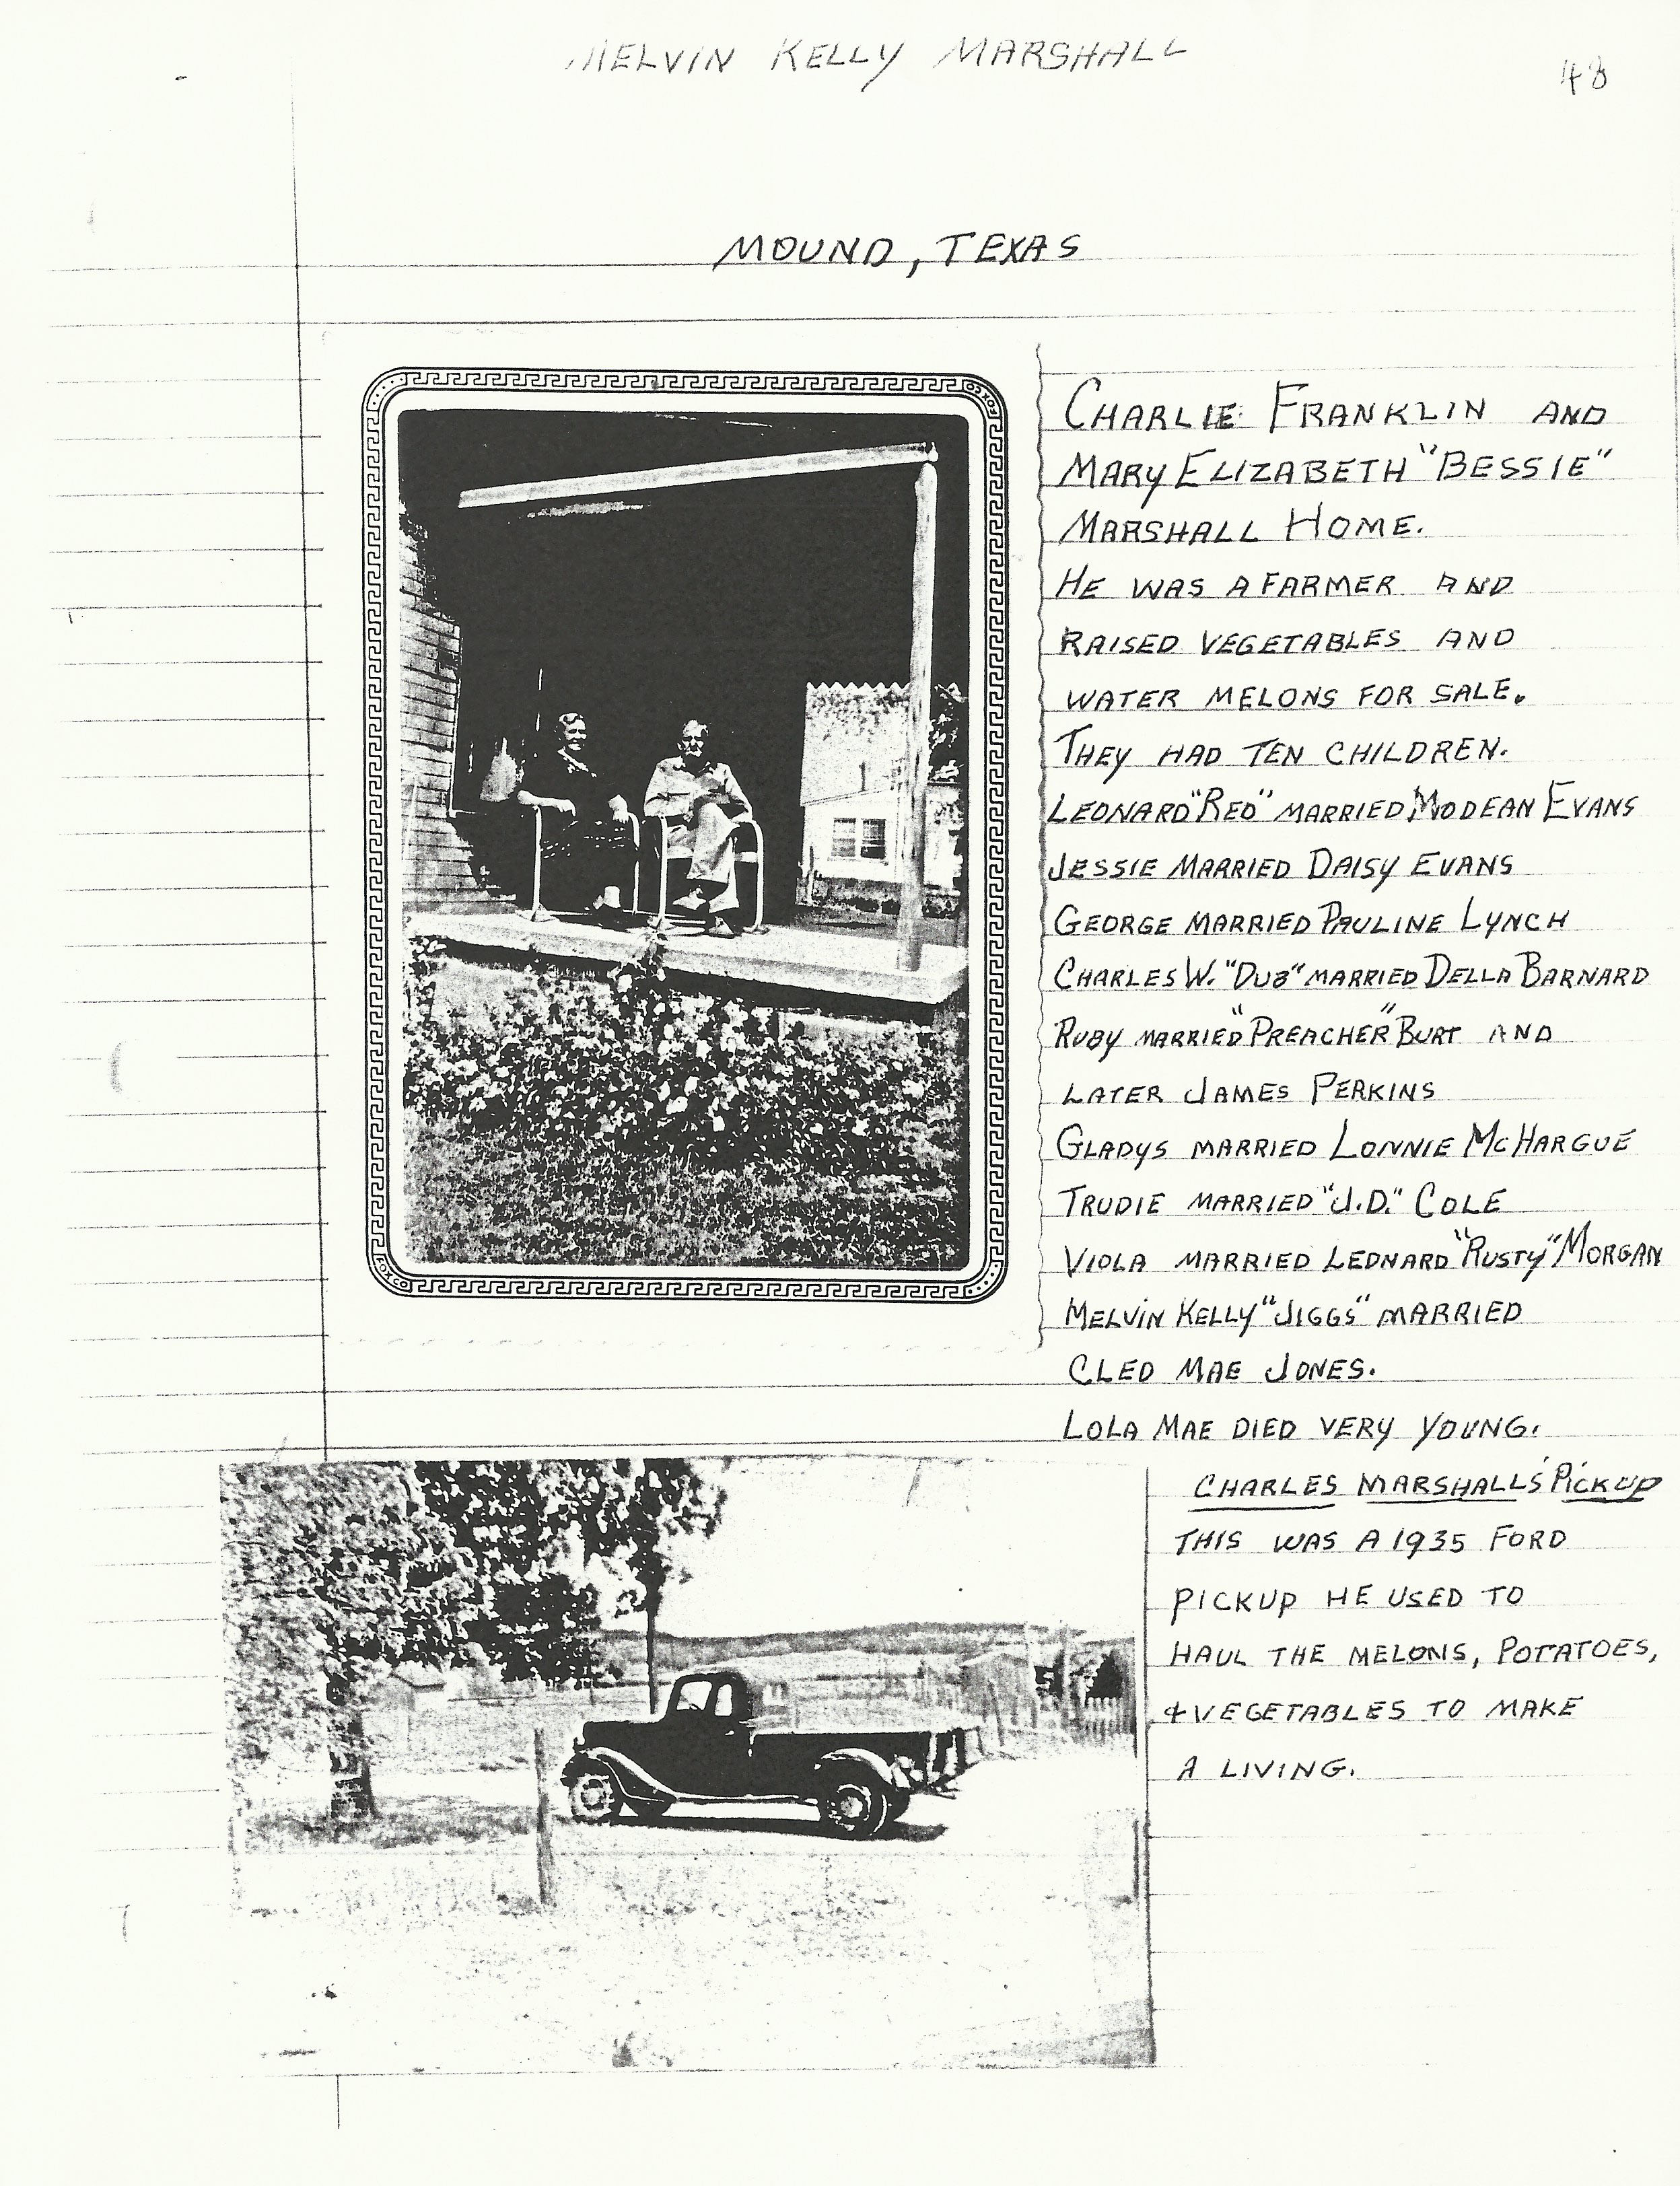 MELVIN KELLY MARSHALL
48
MOUND, TEXAS
CHARLIE FRANKLIN AND
MARY ELIZABETH "BESSIE"
MARSHALL HOME.
HE WAS A FARMER AND
RAISED VEGETABLES AND
WATER MELONS FOR SALE.
THEY HAD TEN CHILDREN.
LEONARD "RED" MARRIED MODEAN EVANS
JESSIE MARRIED DAISY EVANS
GEORGE MARRIED PAULINE LYNCH
CHARLES W. "DUB" MARRIED DELLA BARNARD
RUBY MARRIED "PREACHER" BURT AND
LATER JAMES PERKINS
GLADYS MARRIED LONNIE McHARGUE
TRUDIE MARRIED "J.D." COLE
VIOLA MARRIED LEONARD "RUSTY" MORGAN
MELVIN KELLY "JIGGS" MARRIED
CLEO MAE JONES.
LOLA MAE DIED VERY YOUNG.
CHARLES MARSHALL'S PICKUP
THIS WAS A 1935 FORD
PICKUP HE USED TO
HAUL THE MELONS, POTATOES,
& VEGETABLES TO MAKE
A LIVING.